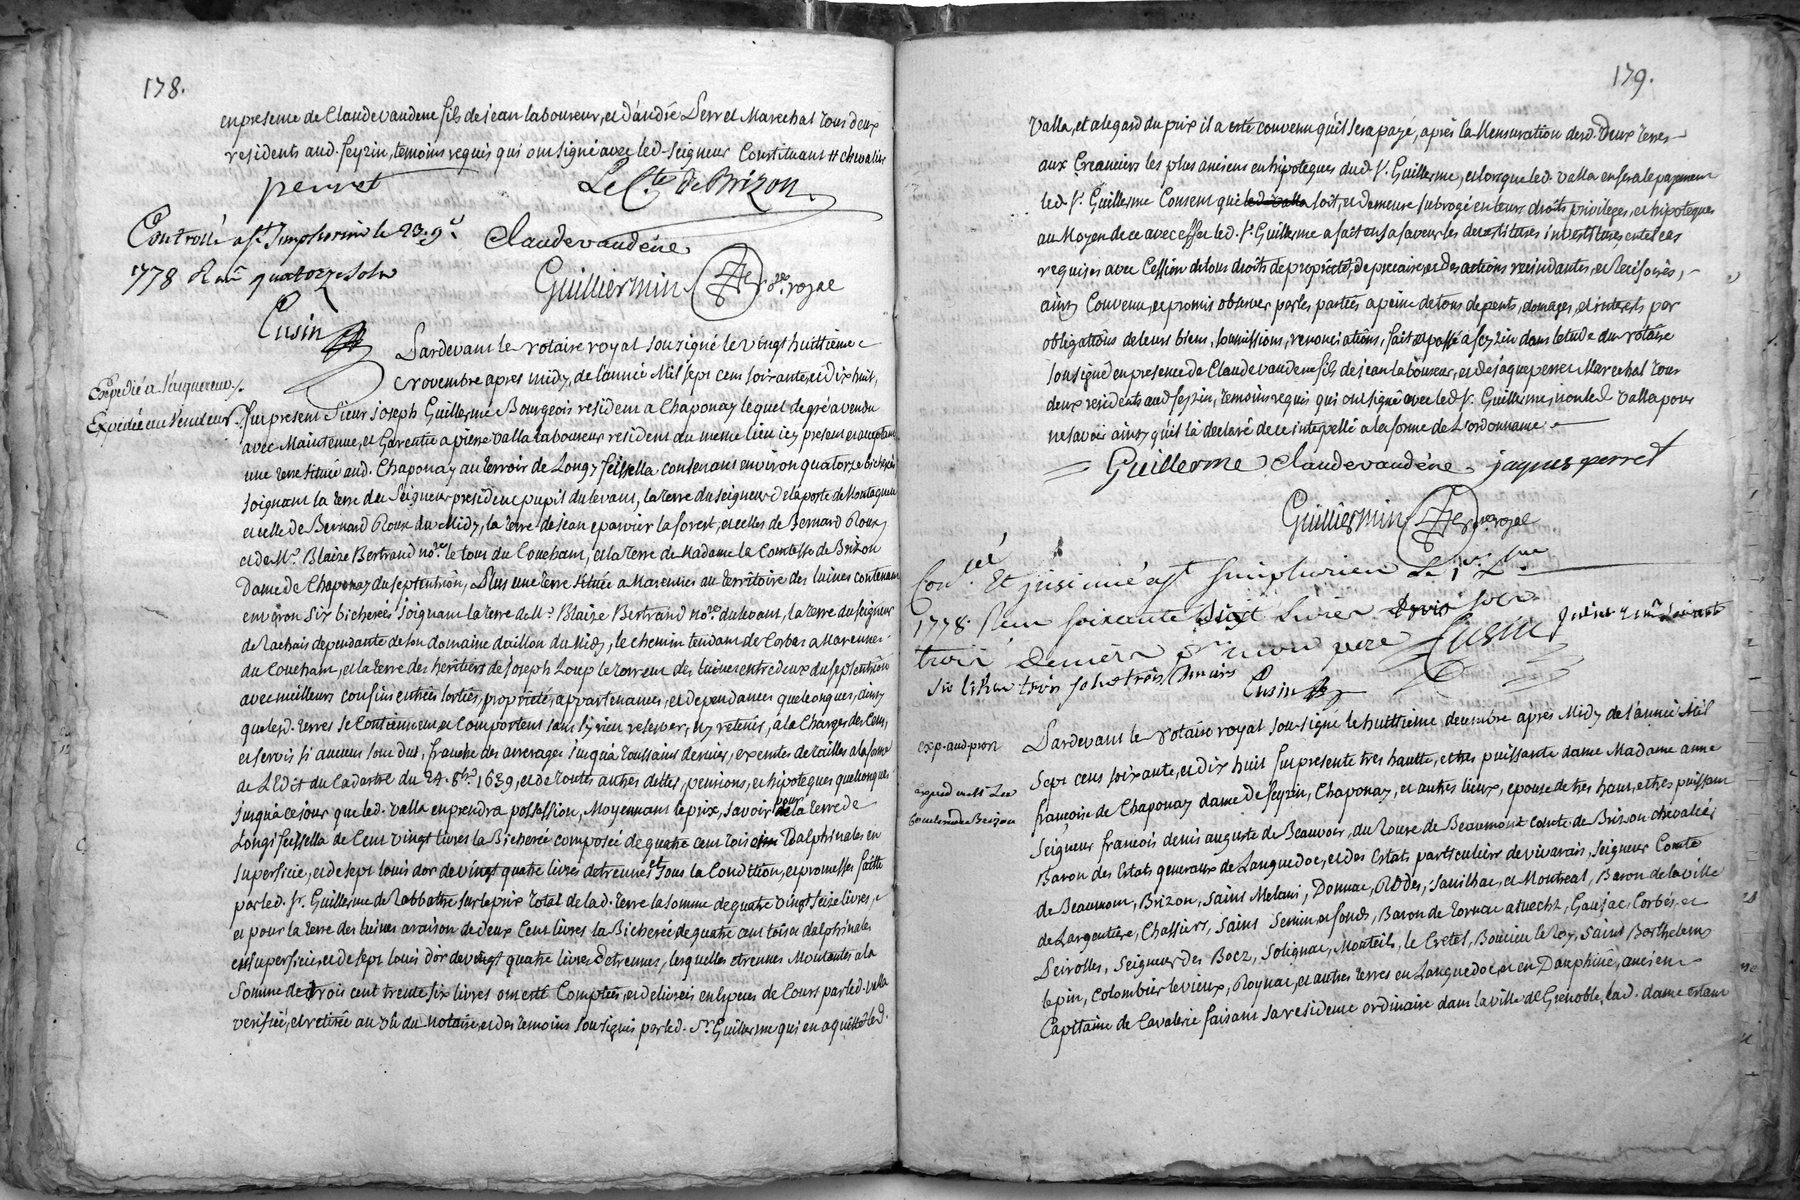 178.
en presence de Claude vaudene fils de jean laboureur, et d'andré Perret Marechal tous deux
residents aud. feyzin, temoins requis qui ont signé avec led. seigneur Constituant # chevalier
perret Le Cte de Brizon
Controllé a St Simphorien le 23. 9e
Claude vaudene
1778 R une quatorze sols
Guilliermin re royal
Cusin
Pardevant le notaire royal sousigné le vingt huittieme
novembre apres midy, de l'année Mil sept cens soixante, et dix huit,
Expedié a l'acquereur
Expediée au Vendeur
fut present Sieur joseph Guillerme Bourgeois resident a Chaponay lequel de gré a vendu
avec Maintenue, et Garentie a pierre valla laboureur resident du meme lieu icy present et acceptant
une terre située aud. Chaponay au terroir de Longi feissella contenant environ quatorze bicherées
joignant la terre du Seigneur president pupil du levant, la terre du seigneur de la porte de Montagneu
et celle de Bernard Roux du Midy, la terre de jean eparvier la forest, et celles de Bernard Roux
et de Mr. Blaize Bertrand nore. le tout du Couchant, et la terre de Madame la Comtesse de Brizon
Dame de Chaponay du septentrion, Plus une terre située a Marennes au territoire des luines contenant
environ six bicherées joignant la terre de Mr. Blaize Bertrand nore du levant, la terre du seigneur
de Rachais dependante de son domaine devillon du Midy, le chemin tendant de Corbas a Marennes
du Couchant, et la terre des heritiers de joseph Loup le torrent des luines entre deux du septentrion
avec meilleurs confins entrées sorties, proprietés, appartenances, et dependances quelconques, ainsy
que lesd. terres se Contiennent, et Comportent sans s'y rien reserver, ny retenir, a la Charge des Cens,
et servis si aucuns sont dus, franche des arrerages jusqu'a toussaint dernier, exemtes de tailles a la forme
de L'edit du Cadastre du 24. 8bre. 1639, et de toutes autres dettes, pensions, et hipoteques quelconques
jusqu'a ce jour que led. valla en prendra possession, Moyennant le prix, savoir pour la terre de
Longi feissella de Cent vingt livres la Bicherée composée de quatre cent toises Dalphinales en
superficie, et de sept louis d'or de vingt quatre livres d'etrennes et sous la Condition, et promesses faitte
par led. sr. Guillerme de Rabbattre sur le prix total de lad. terre la somme de quatre vingt seize livres,
et pour la terre des luines a raison de deux Cent livres la Bicherée de quatre cent toises dalphinales
en superficie, et de sept louis d'or de vingt quatre livres d'etrennes, lesquelles etrennes Montantes a la
somme de trois cent trente six livres ont eté Comptées, et delivrées en Especes de Cours par led. valla
verifiée, et retirée au vû du Notaire, et des temoins sousignés par led. Sr. Guillerme qui en a quitté led.
179.
valla, et a l'egard du prix il a eté convenu qu'il sera payé, après la Mensuration desd. Deux terres
aux Creanciers les plus anciens en hipoteques dud. sr. Guillerme, et lorsque led. valla en fera le payement
led. sr. Guillerme Consent qu'il led. valla soit, et demeure subrogé en leurs droits, privileges, et hipoteques
au Moyen de ce avec effet led. sr. Guillerme a fait en sa faveur les devestitures investitures en tel cas
requises avec Cession de tous droits de proprieté, de precaire, et des actions rescindantes, et Rescisoires,
ainsy Convenu, et promis observer par les parties a peine de tous depents, domages, et interets par
obligations de leurs biens, soumissions, renonciations, fait et passé a feyzin dans l'etude du notaire
sousigné en presence de Claude vaudene fils de jean laboureur, et de jaque perret Marechal tous
deux residents aud. feyzin, temoins requis qui ont signé avec led. sr. Guillerme, non led. valla pour
ne savoir ainsy qu'il l'a declaré de ce interpellé a la forme de L'ordonnance.
Guillerme Claude vaudene jaques perret
Guilliermin re royal
Conlé. Et jnsinué a St. Simphorien le 1er
1778. Reçu soixante livres sols
trois deniers pr. mon pere Cusin
six livres trois sols trois deniers
Cusin
Pardevant le notaire royal sous-signé le huittieme decembre après Midy de l'année Mil
sept cens soixante, et dix huit fut presente tres hautte, et tres puissante dame Madame anne
françoise de Chaponay dame de feyzin, Chaponay, et autres lieux, epouse de tres haut, et tres puissant
Seigneur françois denis auguste de Beauvoir, du Roure de Beaumont comte de Brizon chevalier
Baron des Etats generaux de Languedoc, et des Etats particuliers de vivarais, seigneur Comte
de Beaumont, Brizon, saint Melani, Donnac, Rodes, sanilhac, et Montreal, Baron de la ville
de Largentiere, Chassiers, saint sernin, et fonds, Baron de tornac atuecht, Gaujac, Corbés, et
Peirolles, seigneur des Boez, solignac, Monteils, le Cretet, Boucieu le Roy, saint Barthelemy
le pin, Colombier le vieux, Roynac, et autres terres en Languedoc, et en Dauphiné, ancien
Capitaine de Cavalerie faisant sa residence ordinaire dans la ville de Grenoble, lad. dame etant